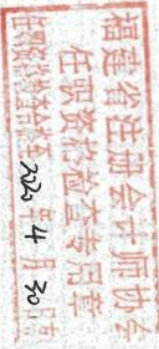 福建省注册会计师协会
任职资格检查专用章
任职资格检查合格至2020年4月30日前